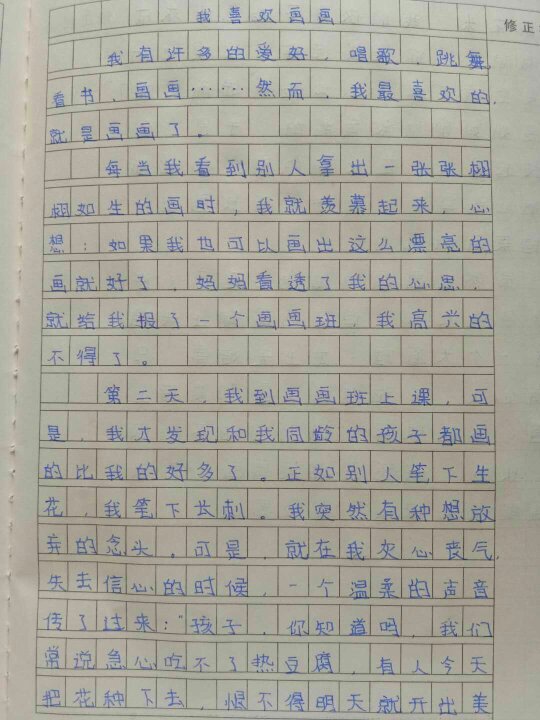 修正
我喜欢画画
我有许多的爱好，唱歌、跳舞、
看书、画画……然而，我最喜欢的，
就是画画了。
每当我看到别人拿出一张张栩
栩如生的画时，我就羡慕起来，心
想：如果我也可以画出这么漂亮的
画就好了，妈妈看透了我的心思，
就给我报了一个画画班，我高兴的
不得了。
第二天，我到画画班上课，可
是，我才发现和我同龄的孩子都画
的比我的好多了。正如别人笔下生
花，我笔下长刺。我突然有种想放
弃的念头。可是，就在我灰心丧气，
失去信心的时候，一个温柔的声音
传了过来：“孩子，你知道吗，我们
常说急心吃不了热豆腐，有人今天
把花种下去，恨不得明天就开出美